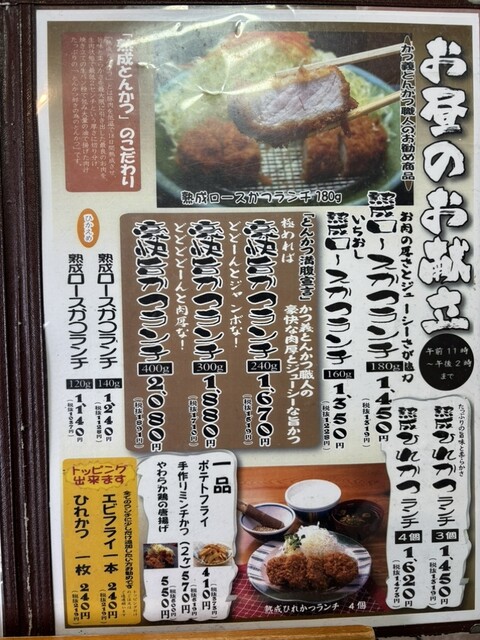 お昼のお献立
午前11時
～午後2時
まで
かつ義とんかつ職人のお勧め商品
熟成ロースかつランチ180g
「熟成とんかつ」のこだわり
お肉の厚さとジューシーさが魅力
熟成ロースかつランチ
180g
1,450円
(税抜1319円)
いちおし
熟成ロースかつランチ
160g
1,350円
(税抜1228円)
「とんかつ満腹宣言」かつ義とんかつ職人の
豪快な肉厚とジューシーな旨かつ
極めれば
どどーんとジャンボな!
豪快かつランチ
240g
1670円
(税抜1519円)
豪快かつランチ
300g
1880円
どどどどーんと肉厚な!
豪快かつランチ
400g
2080円
ひかえめ
熟成ロースかつランチ
140g
1,240円
(税抜1128円)
熟成ロースかつランチ
120g
1,140円
(税抜1037円)
熟成ひれかつランチ
3個
1,450円
(税抜1319円)
熟成ひれかつランチ
4個
1,620円
(税抜1473円)
熟成ひれかつランチ 4個
一品
ポテトフライ
410円
(税抜373円)
手作りミンチかつ(2ヶ)
570円
やわらか鶏の唐揚げ
550円
(税抜500円)
トッピング
出来ます
エビフライ 一本 240円
ひれかつ 一枚 240円